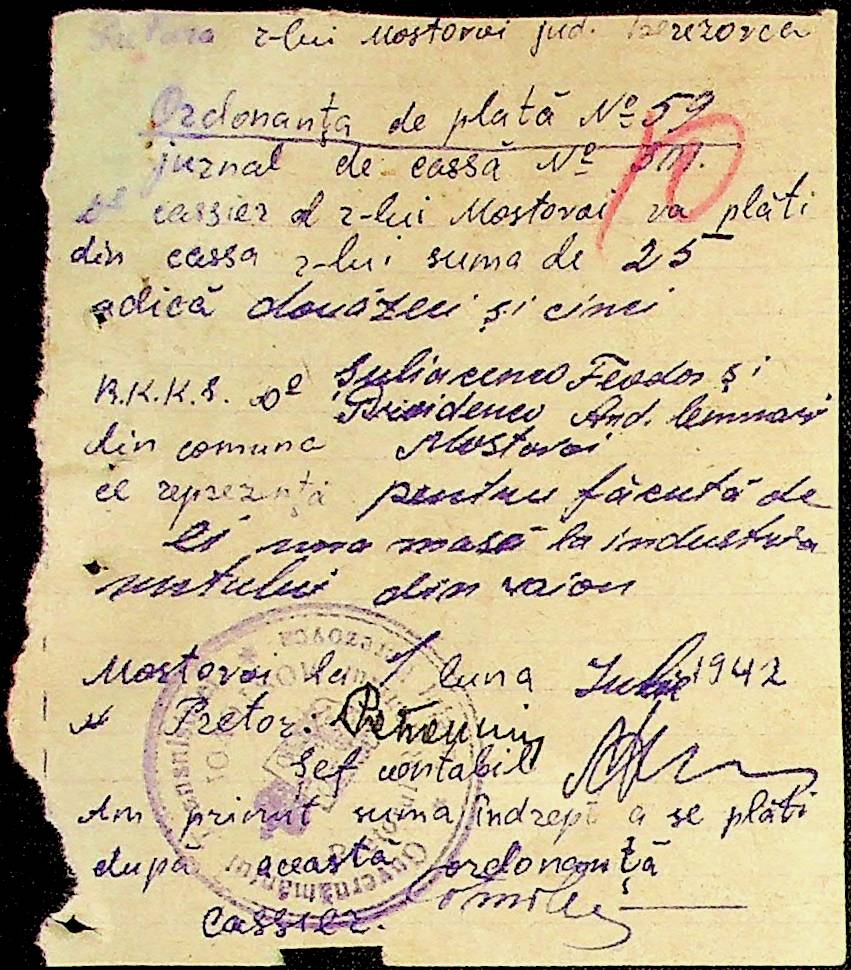 r-lui Mostovoi jud. Berezovca
Ordonanţa de plată № 59
jurnal de cassă №
cassier al r-lui Mostovoi va plăti
din cassa r-lui suma de 25
adică douăzeci şi cinci
R.K.K.S. Suliacenco Feodor şi
And.
din comuna Mostovoi
ce reprezintă pentru făcută de
ei una masă la industria
din raion
Mostovoi la 1 luna Iulie 1942
Pretor:
Şef contabil
Am primit suma îndrept a se plăti
după această ordonanţă
Cassier.
Guvernământul
10